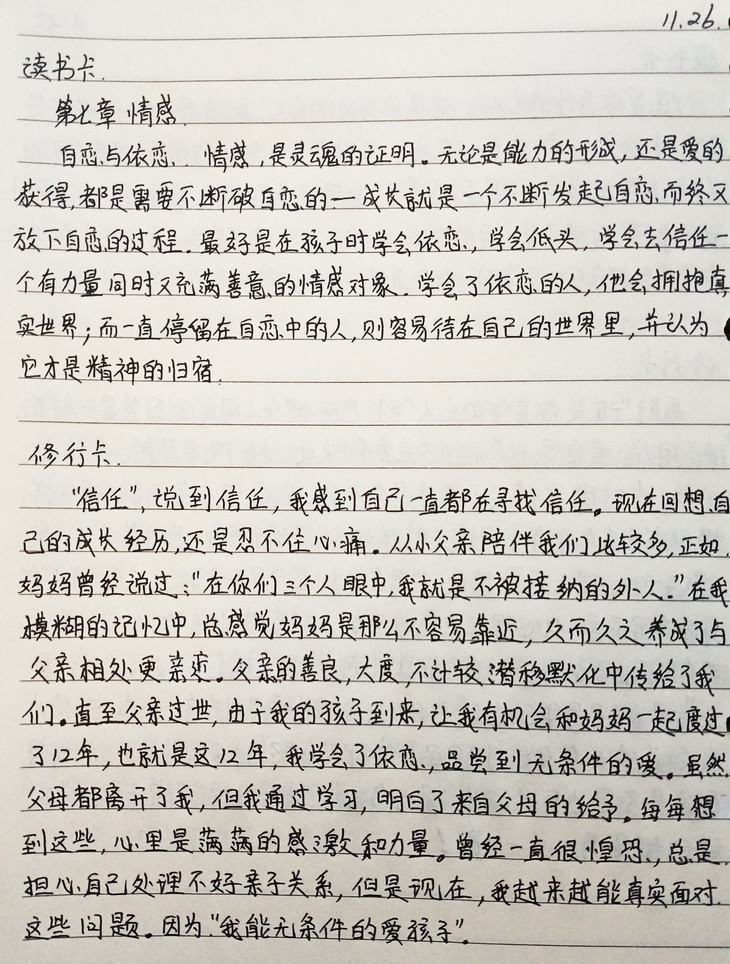 11.26.
读书卡.
第七章 情感.
自恋与依恋. 情感,是灵魂的证明。无论是能力的形成,还是爱的
获得,都是需要不断破自恋的一成长就是一个不断发起自恋,而终又
放下自恋的过程. 最好是在孩子时学会依恋,学会低头,学会去信任一
个有力量同时又充满善意的情感对象. 学会了依恋的人,他会拥抱真
实世界;而一直停留在自恋中的人,则容易待在自己的世界里,并认为
它才是精神的归宿.
修行卡.
"信任",说到信任,我感到自己一直都在寻找信任。现在回想自
己的成长经历,还是忍不住心痛。从小父亲陪伴我们比较多,正如
妈妈曾经说过:"在你们三个人眼中,我就是不被接纳的外人."在我
模糊的记忆中,总感觉妈妈是那么不容易靠近,久而久之养成了与
父亲相处更亲密。父亲的善良,大度,不计较潜移默化中传给了我
们。直至父亲过世,由于我的孩子到来,让我有机会和妈妈一起度过
了12年,也就是这12年,我学会了依恋,品尝到无条件的爱。虽然
父母都离开了我,但我通过学习,明白了来自父母的给予。每每想
到这些,心里是满满的感激和力量。曾经一直很惶恐,总是
担心自己处理不好亲子关系,但是现在,我越来越能真实面对
这些问题。因为"我能无条件的爱孩子".